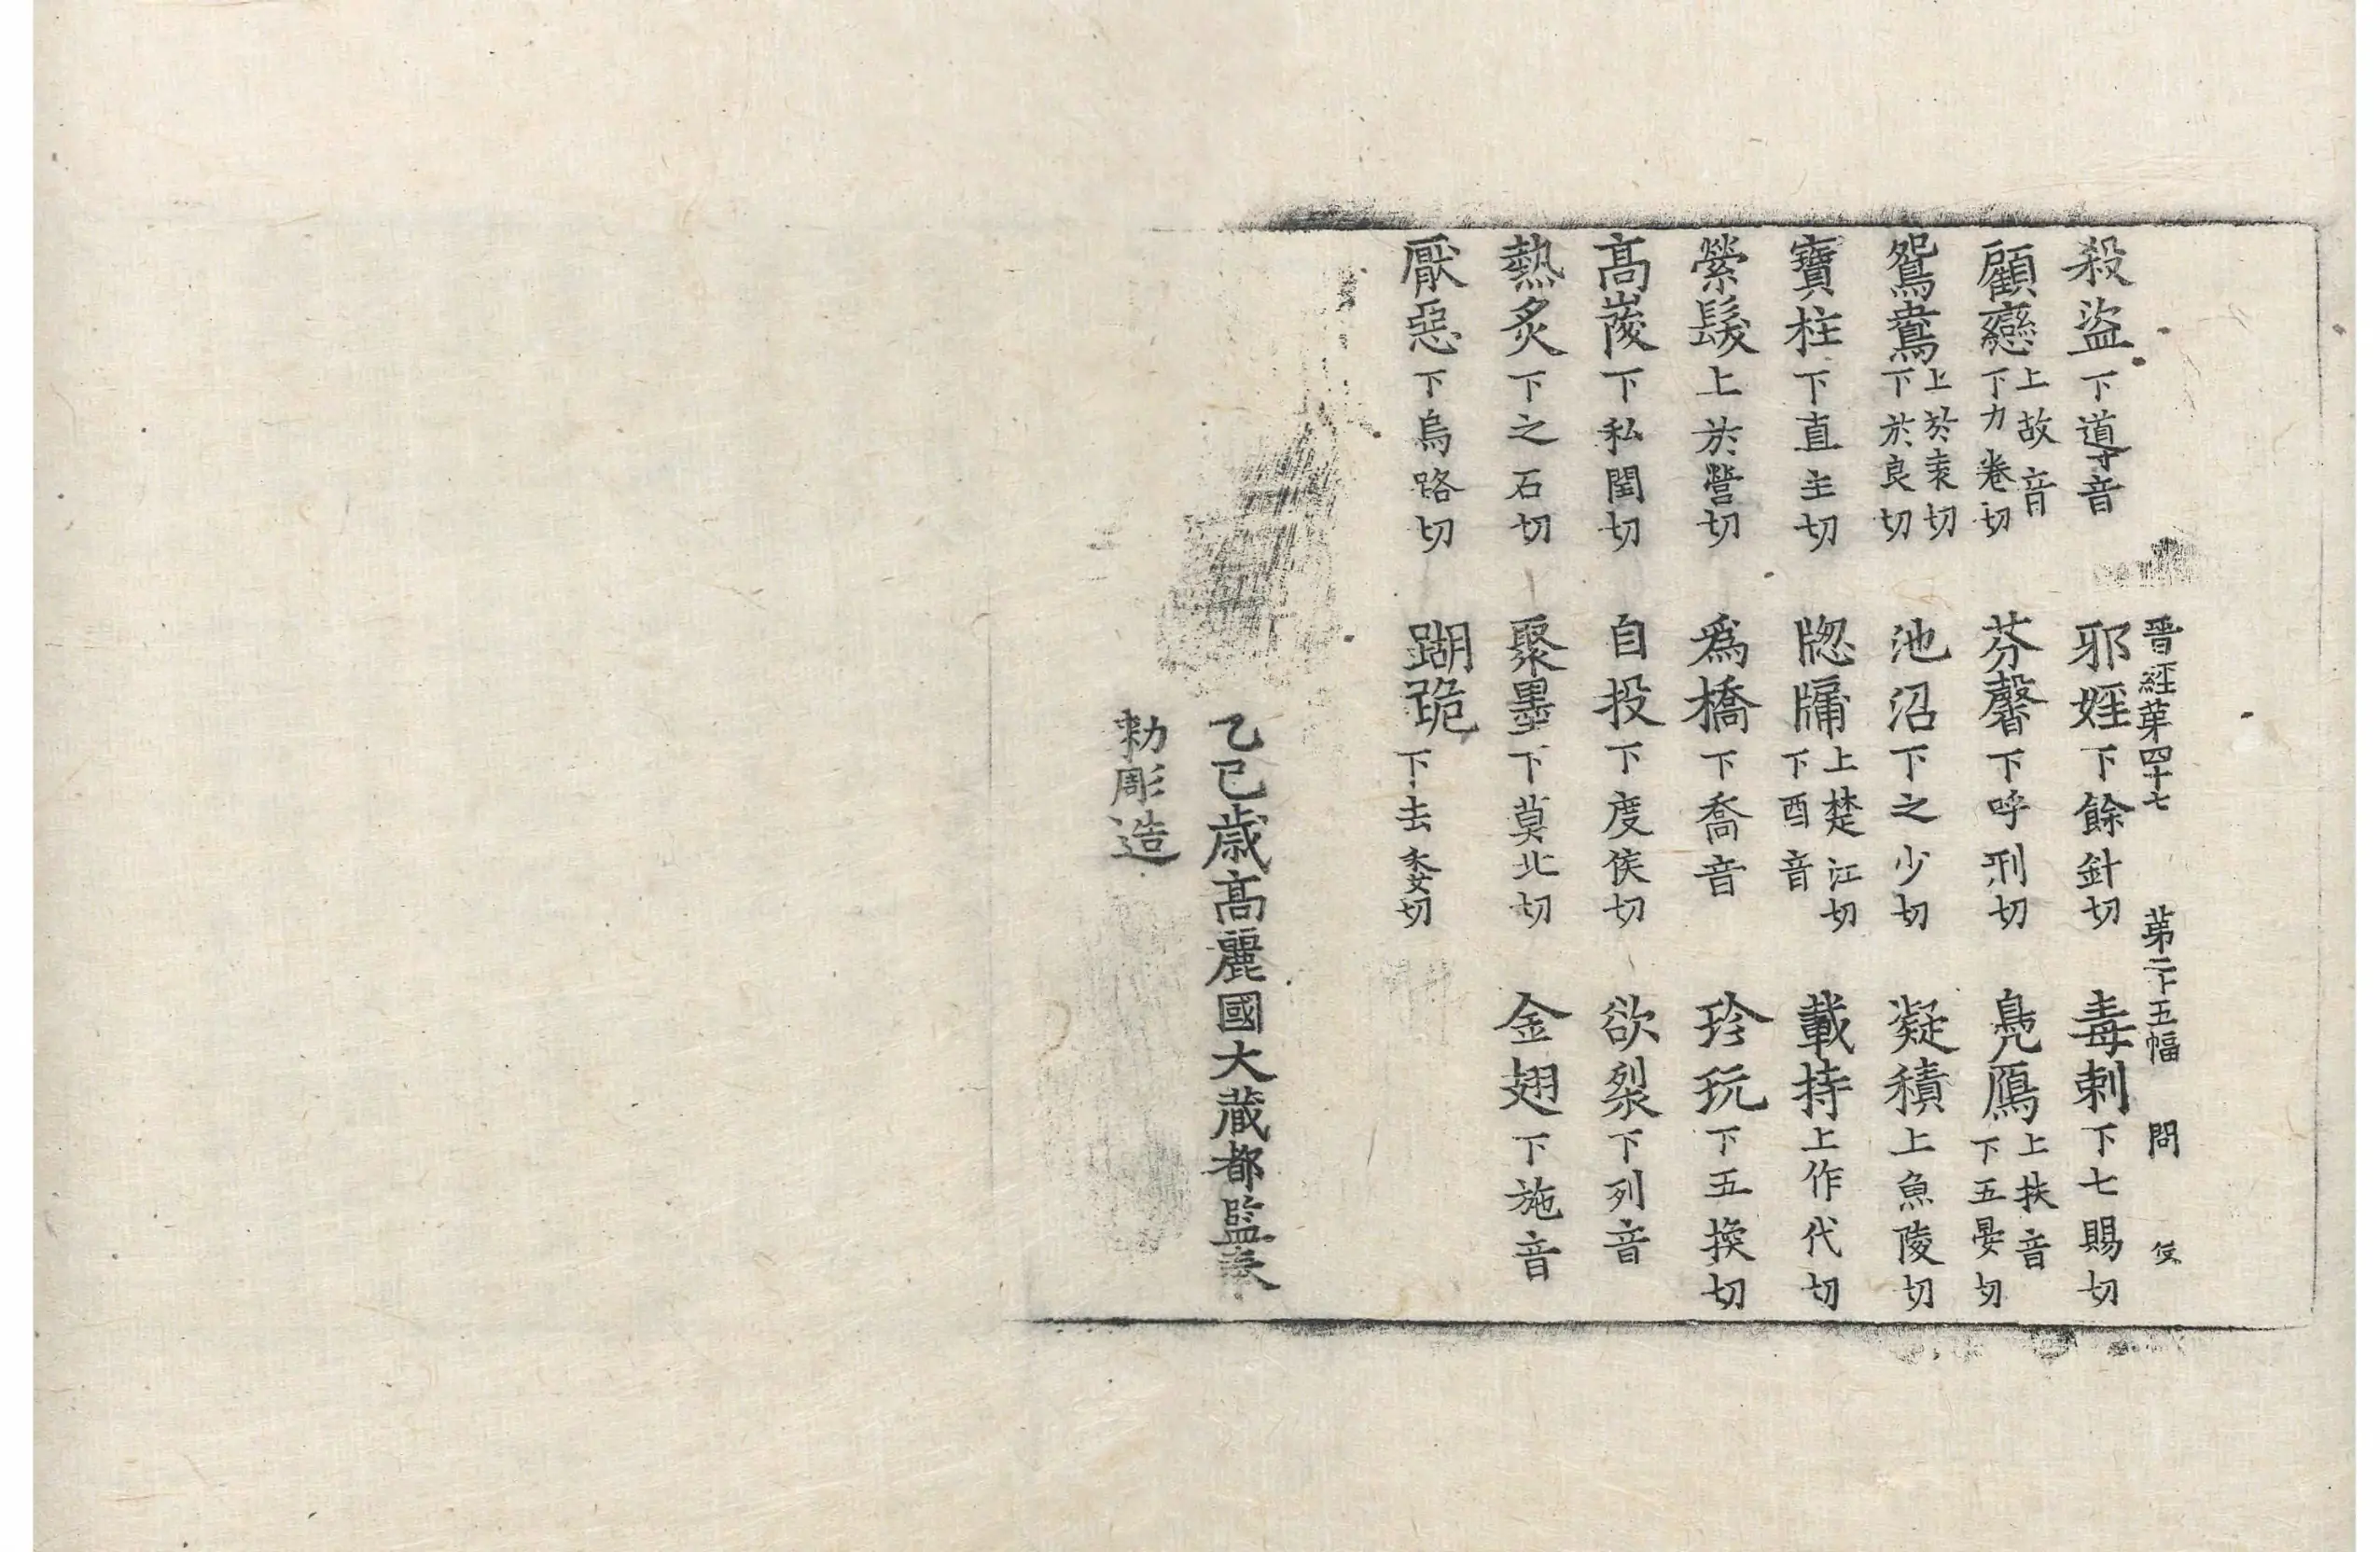 晉經第四十七 第二十五幅 問
殺盜下導音 邪婬下餘針切 毒刺下七賜切
顧戀上故音下力卷切 芬馨下呼刑切 鳧鴈上扶音下五晏切
鴛鴦上於袁切下於良切 池沼下之少切 凝積上魚陵切
寶柱下直主切 牎牗上楚江切下酉音 載持上作代切
縈髮上於營切 爲橋下喬音 珍玩下五換切
高峻下私閏切 自投下度侯切 欲裂下列音
熱炙下之石切 聚墨下莫北切 金翅下施音
厭惡下烏路切 𨆝跪下去委切
乙巳歲高麗國大藏都監奉
勅彫造